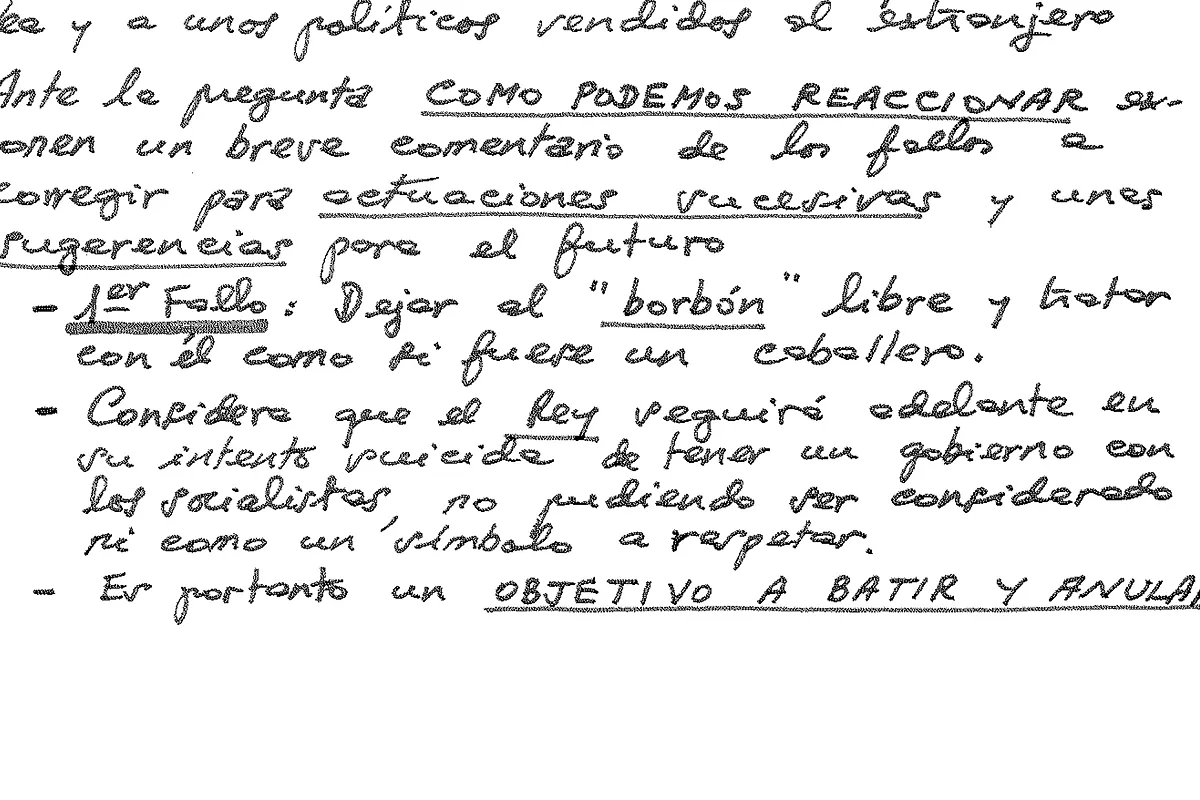 y a unos políticos vendidos al extranjero
Ante la pregunta COMO PODEMOS REACCIONAR ex-
onen un breve comentario de los fallos a
corregir para actuaciones sucesivas y unas
sugerencias para el futuro
- 1er Fallo: Dejar al "borbón" libre y tratar
con él como si fuese un caballero.
- Considera que el Rey seguirá adelante en
su intento suicida de tener un gobierno con
los socialistas, no pudiendo ser considerado
ni como un símbolo a respetar.
- Es portanto un OBJETIVO A BATIR Y ANULAR